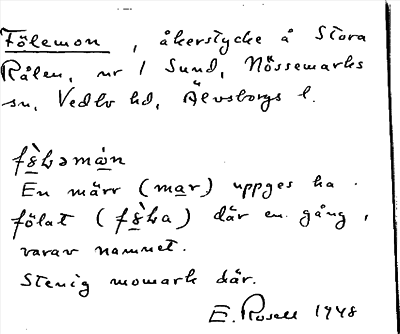 Fölemon, åkerstycke å Stora
Rålen, nr 1 Sund, Nössemarks
sn, Vedbo hd, Älvsborgs l.
En märr (mar) uppges ha
fölat () där en gång,
varav namnet.
Stenig momark där.
E. Rosell 1948